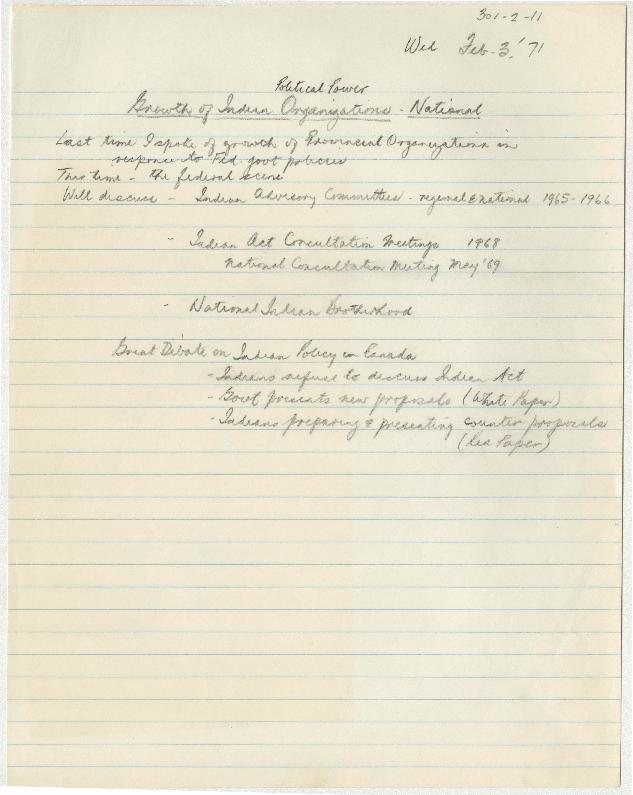 301-2-11
Wed Feb. 3, '71
Political Power
Growth of Indian Organizations - National
Last time I spoke of growth of Provincial Organizations in
response to Fed. govt policies
This time - the federal scene
Will discuss - Indian Advisory Committees - regional & national 1965-1966
- Indian Act Consultation Meetings 1968
National Consultation Meeting May '69
- National Indian Brotherhood
Great Debate on Indian Policy in Canada
- Indians refuse to discuss Indian Act
- Govt presents new proposals (White Paper)
- Indians preparing & presenting counter proposals
(Red Paper)